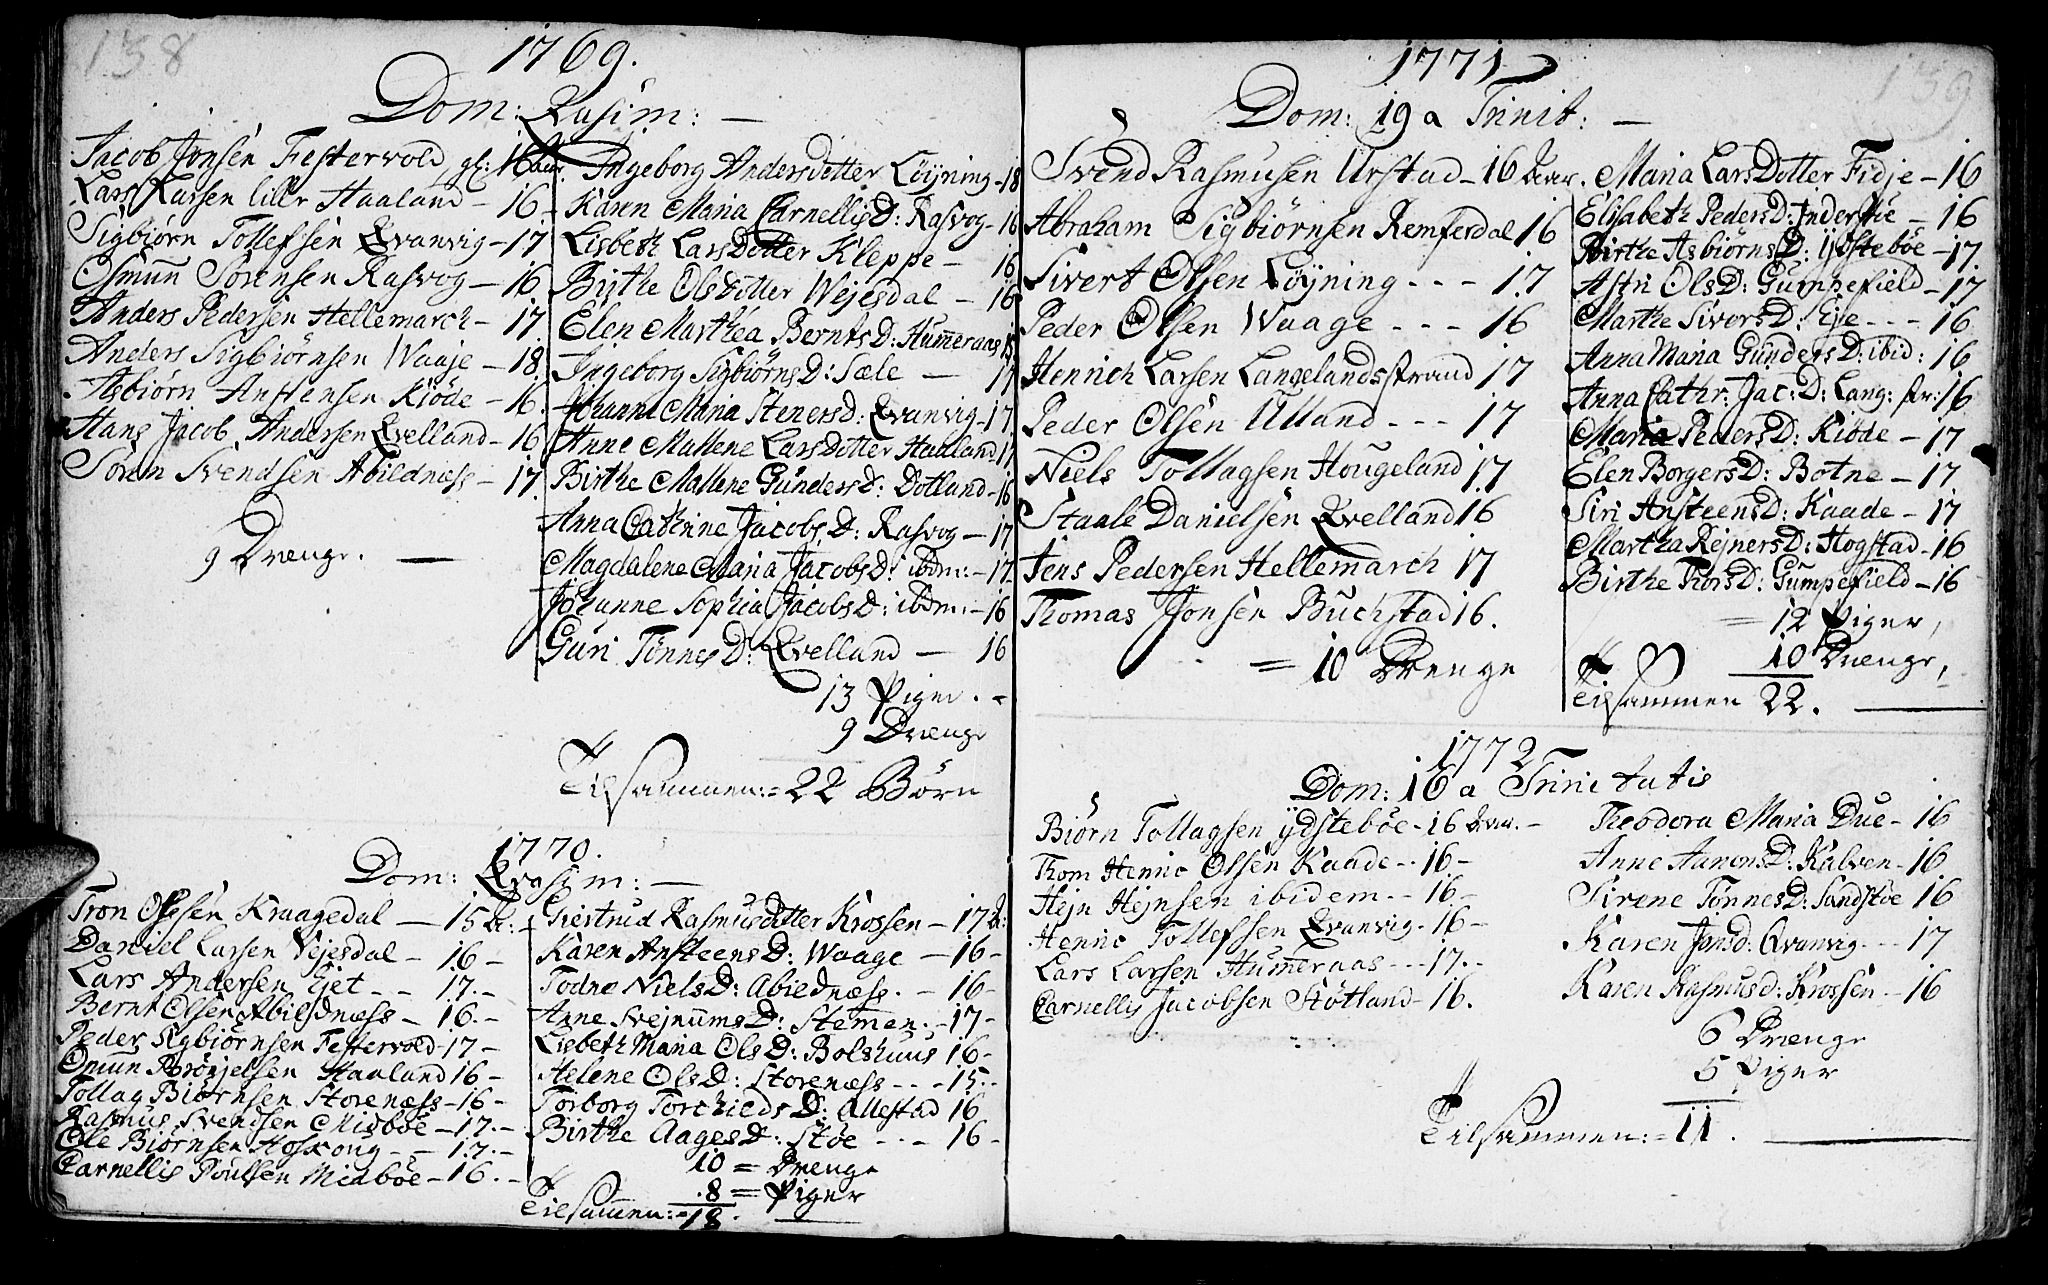 138
1769.
Dom: Qvasim: —
Jacob Jonsen Festervold, gl: 16 aar.
Lars Larsen lille Haaland – 16 –
Sigbiörn Tollefsen Qvanvig – 17
Osmun̄ Sörensen Rasvog – 16
Anders Pedersen Hellemarch – 17.
Anders Sigbiørnsen Waaje – 18.
Asbiörn Anstensen Kiöde – 16.
Hans Jacob Andersen Qvelland – 16
Sören Svendsen Abildnæss – 17.
9 Drenge. —
Ingeborg Andersdotter Löyning – 18
Karen Maria CarnellisD: Rasvog – 16
Lisbeth LarsDotter Kleppe – 16
Birthe Olsdotter Wejesdal – 16
Elen Marthea BerntsD: Hum̄eraas 15
Ingeborg SigbiörnsD: Sæle — 17
Johanne Maria Stenersd: Qvanvig – 17
Anne Mallene LarsDotter Haaland 17
Birthe Mallene GundersD: Dotland – 16
Anna Cathrine JacobsD: Rasvog – 17
Magdalene Maria JacobsD: ibdm: – 17.
Johanne Sophia JacobsD: ibdm: – 16
Guri TönnesD: Qvelland — 16
13 Piger. –
9 Drenge
Tilsammen: = 22 Börn
1770.
Dom: Qvasim: —
Tron Olsen Kraagedal — 15 Ar: –
Daniel Larsen Vejesdal – 16 –
Lars Andersen Ejet – – 17. –
Bernt Olsen Abildnæss – 16. –
Peder Sigbiørnsen Festervold – 17 –
Omun Haaland 16 –
Tollag Biörnsen Storenæss – 16 –
Rasmus Svendsen Midböe – 17. –
Ole Biörnsen – – 17. –
Carnellis Poulsen Midböe – 16. –
Giertrud Rasmusdatter Krossen – 17 A:
Karen AnsteensD: Waage — 16 –
Todne NielsD: Abiednæss. – 16 –
Anne SvejnumsD: Stemen. – 17 –
Lisbeth Maria OlsD: Bolshuus 16 –
Helene OlsD: Storenæss – – – 15. –
Torborg TorchieldsD: Allestad 16
Birthe AagesD: Stöe – – – 16 –
10 = Drenge
8 = Piger
Tilsam̄en: = 18.
139
1771
Dom: 19 a Trinit: —
Svend Rasmusen Urstad – 16 aar.
Abraham Sigbiörnsen Remfesdal 16
Sivert Olsen Löyning – – – 17
Peder Olsen Waage – – – 16
Henrich Larsen Langelandsstrand 17
Peder Olsen Ulland – – – 17
Niels Tollagsen Hougeland 17
Staale Danielsen Qvelland 16
Jens Pedersen Hellemarch 17
Thomas Jonsen Buchstad 16.
= 10 Drenge
Maria LarsDotter Fidje – 16
Elisabeth PedersD: – 16
Birthe AsbiörnsD: Ydsteböe – 17
Astri OlsD: Gumpefield – 17
Marthe SiversD: Eje – – – 16
Anna Maria GundersD: ibid: 16
Anna Cathr: Jac: D: Lang: str: 16
Maria PedersD: Kiöde – 17
Elen BorgersD: Botne – 17
Siri AnsteensD: Kaade – 17
Martha RejnersD: Hogstad – 16
Birthe ThorsD: Gumpefield – 16
= 12 Piger,
10 Drenge,
Tilsammen 22.
1772
Dom: 16 a Trinitatis
Biörn Tollagsen Ydsteböe – 16 aar. –
Thom Henric Olsen Kaade – – 16 –
Hejn Hejnsen ibidem – – 16. –
Henric Tollefsen Qvanvig. 16 –
Lars Larsen Hum̄eraas – – – 17. –
Carnellis Jacobsen Stötland – 16.
Theodora Maria Due – 16
Anne AanonsD: Kalven – 16
Sirene TönnesD: Sandstöe 16
Karen Jonsd: Qvanvig – – – 17
Karen Rasmusd: Krossen – – 16
6 Drenge
5 Piger
Tilsammen: = 11.